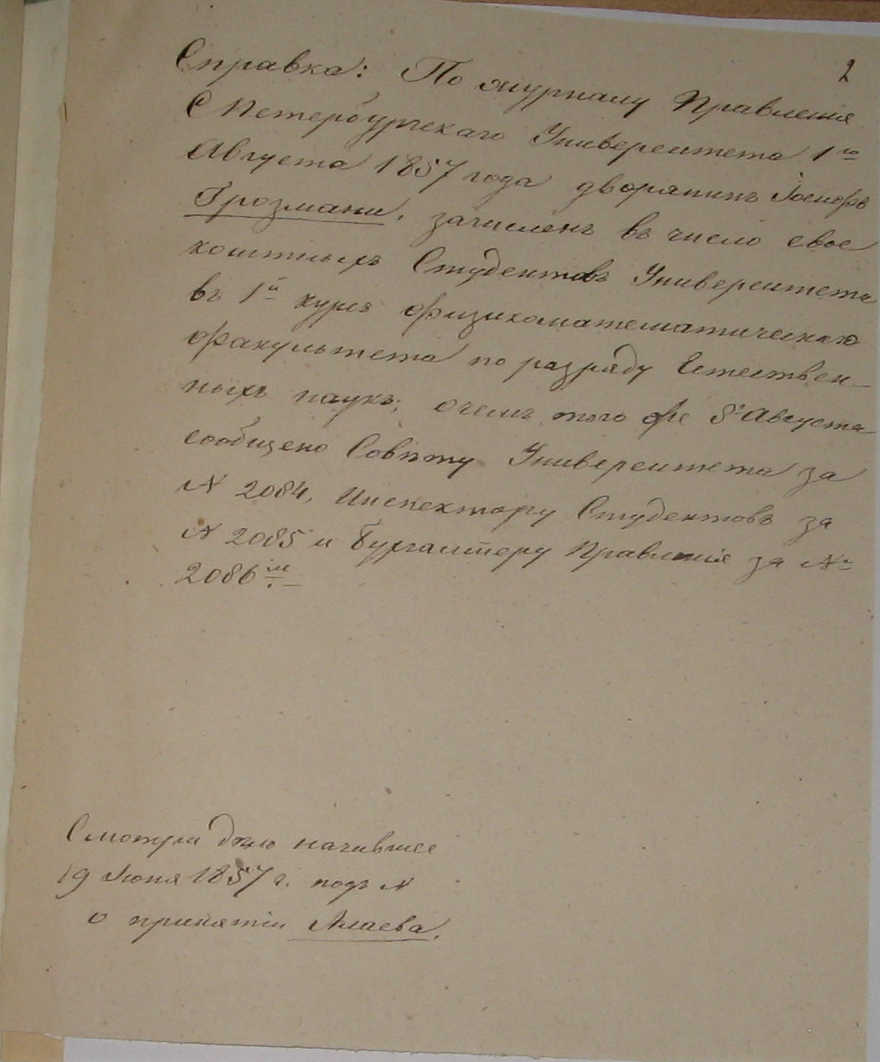 2
Справка: По журналу Правленія
С Петербургскаго Университета 1го
Августа 1857 года дворянинъ Іосифъ
Грозмани, зачисленъ въ число свое
коштныхъ Студентовъ Университета
въ 1й курсъ физикоматематическаго
факультета по разряду Естествен-
ныхъ наукъ; о чемъ того же 8го Августа
сообщено Совѣту Университета за
N 2084, Инспектору Студентовъ за
N 2085 и Бухгалтеру Правленія за №
2086 м.
Смотри дѣло начавшее
19 Іюня 1857 г. подъ N
о принятіи Алаева.